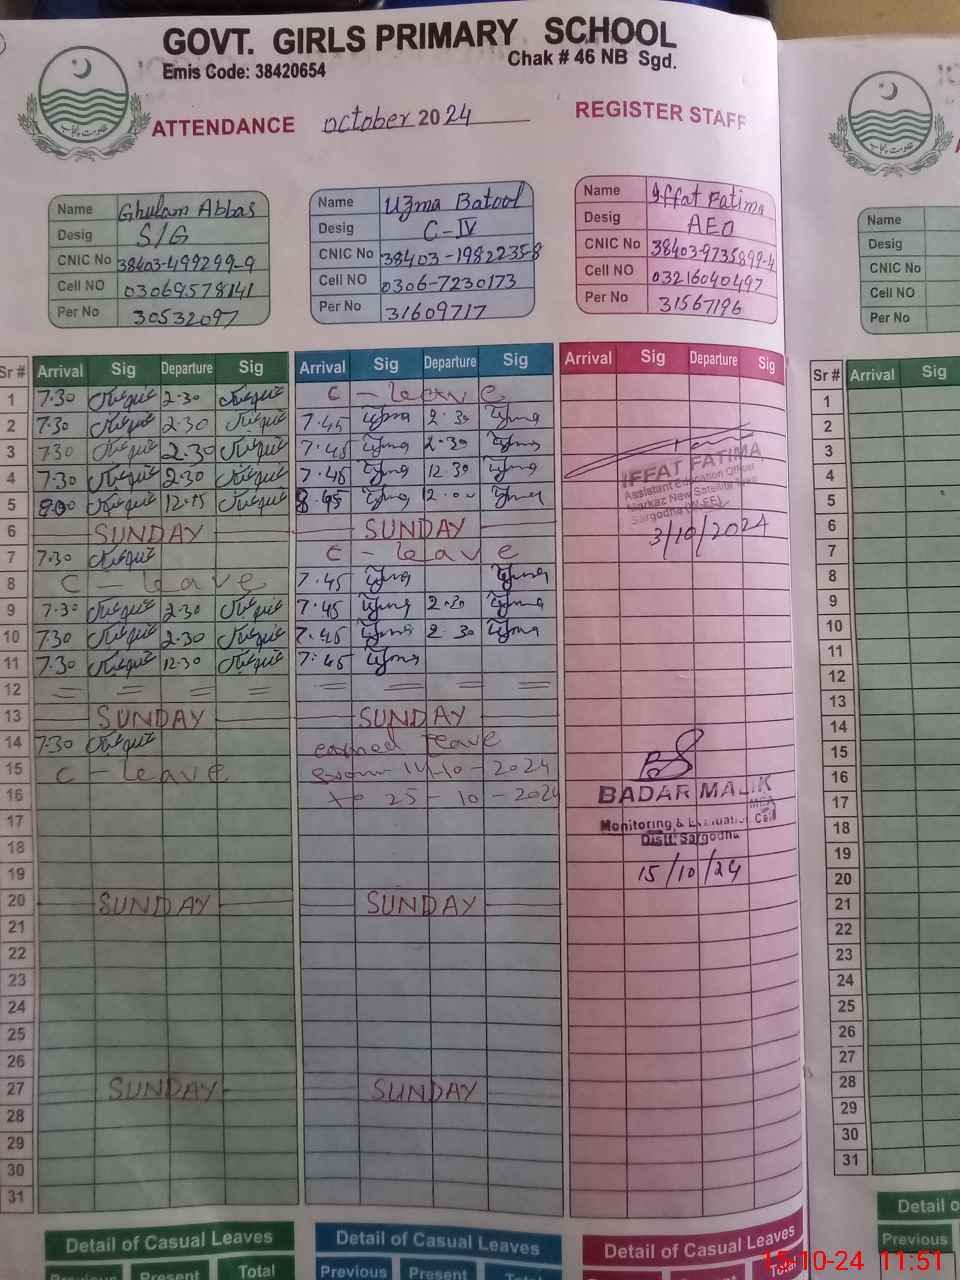 GOVT. GIRLS PRIMARY SCHOOL
Emis Code: 38420654 Chak # 46 NB Sgd.
ATTENDANCE October 2024 REGISTER STAFF
حکومت پنجاب
Name Ghulam Abbas
Desig S/G
CNIC No 38403-499299-9
Cell NO 03069578141
Per No 30532097
Name Uzma Batool
Desig C-IV
CNIC No 38403-1982235-8
Cell NO 0306-7230173
Per No 31609717
Name Iffat Fatima
Desig AEO
CNIC No 38403-9735899-4
Cell NO 03216040497
Per No 31567196
Name
Desig
CNIC No
Cell NO
Per No
Sr # Arrival Sig Departure Sig Arrival Sig Departure Sig Arrival Sig Departure Sig Sr # Arrival Sig
1 7.30 2.30 C - leave 1
2 7.30 2.30 7.45 Uzma 2.30 Uzma 2
3 7.30 2.30 7.45 Uzma 2.30 Uzma 3
4 7.30 2.30 7.45 Uzma 12.30 Uzma 4
5 8.00 12.15 8.45 Uzma 12.00 Uzma 5
IFFAT FATIMA
Assistant Education Officer
Markaz New Satellite Town
Sargodha (W-EE)
3/10/2024
6 SUNDAY SUNDAY 6
7 7.30 C - leave 7
8 C - leave 7.45 Uzma Uzma 8
9 7.30 2.30 7.45 Uzma 2.30 Uzma 9
10 7.30 2.30 7.45 Uzma 2.30 Uzma 10
11 7.30 12.30 7:45 Uzma 11
12 = = = = = = = = 12
13 SUNDAY SUNDAY 13
14 7.30 earned leave 14
15 C - leave from 14-10-2024 15
16 to 25-10-2024 16
BADAR MALIK
MEA
Monitoring & Evaluation Cell
Distt. Sargodha
15/10/24
17 17
18 18
19 19
20 SUNDAY SUNDAY 20
21 21
22 22
23 23
24 24
25 25
26 26
27 SUNDAY SUNDAY 27
28 28
29 29
30 30
31 31
Detail of Casual Leaves Detail of Casual Leaves Detail of Casual Leaves Detail o
Previous Present Total Previous Present Total Total Previous
15-10-24 11:51